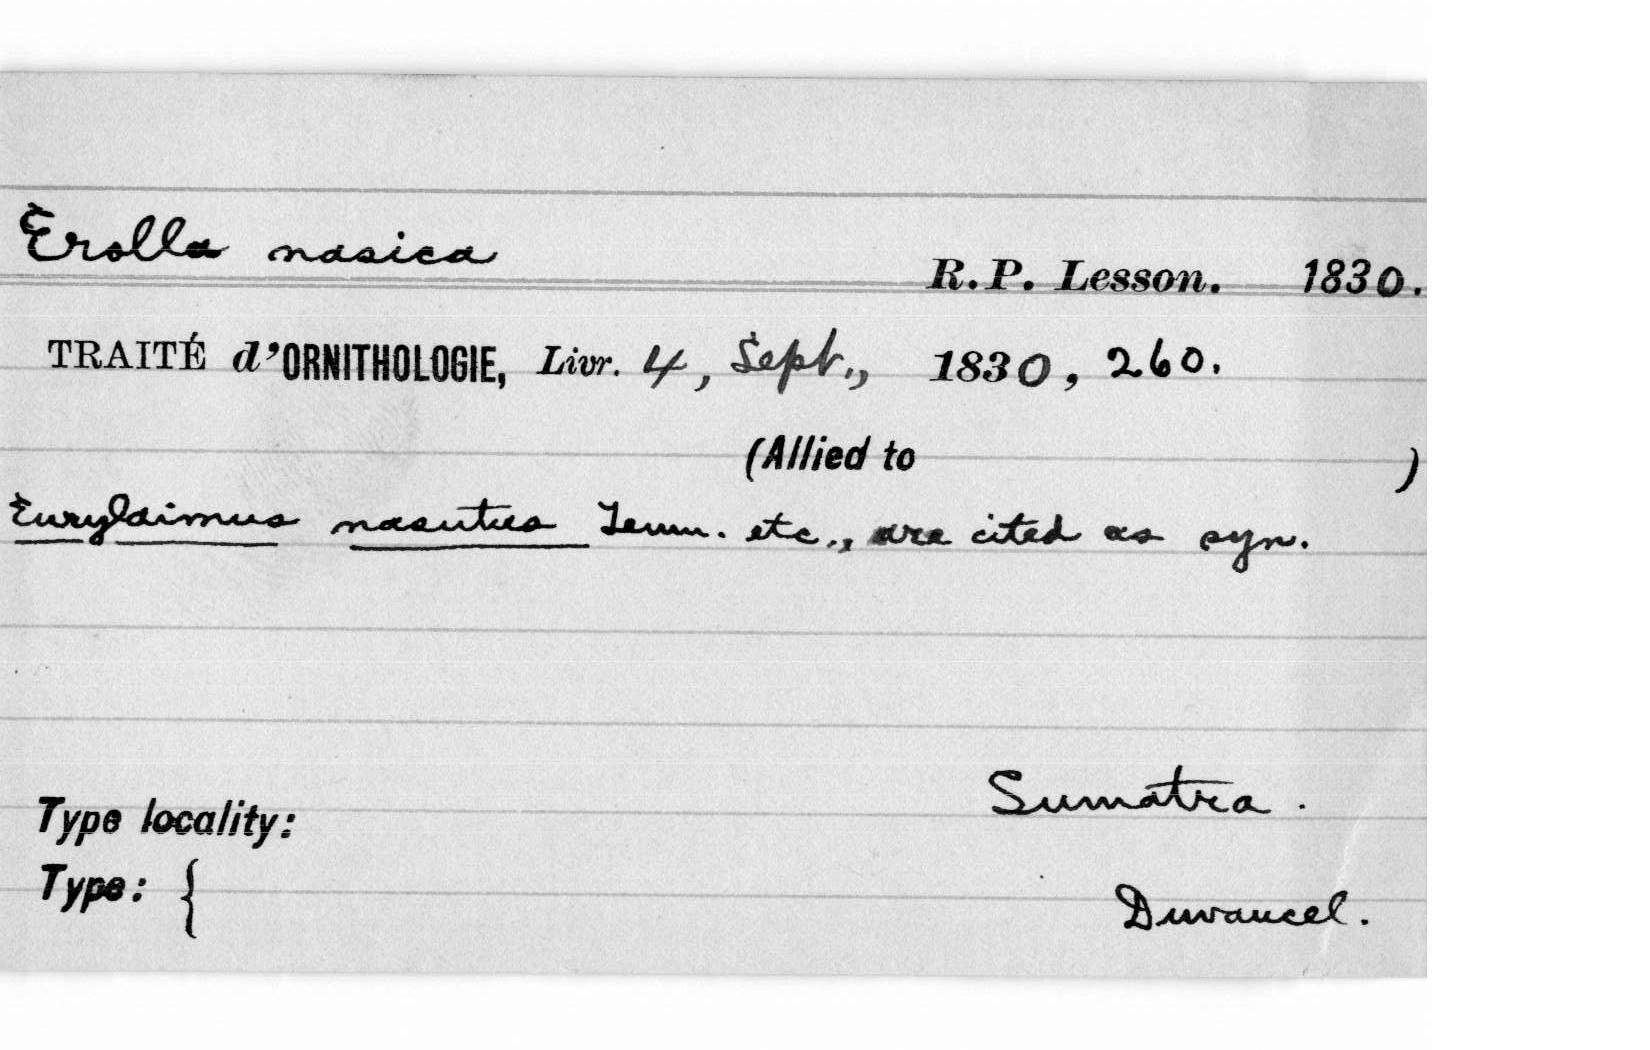 Erolla nasica
R.P. Lesson. 1830.
TRAITÉ d'ORNITHOLOGIE, Livr. 4, Sept., 1830, 260.
(Allied to )
Eurylaimus nasutus Temm. etc., are cited as syn.
Sumatra.
Type locality:
Type: {
Duvaucel.